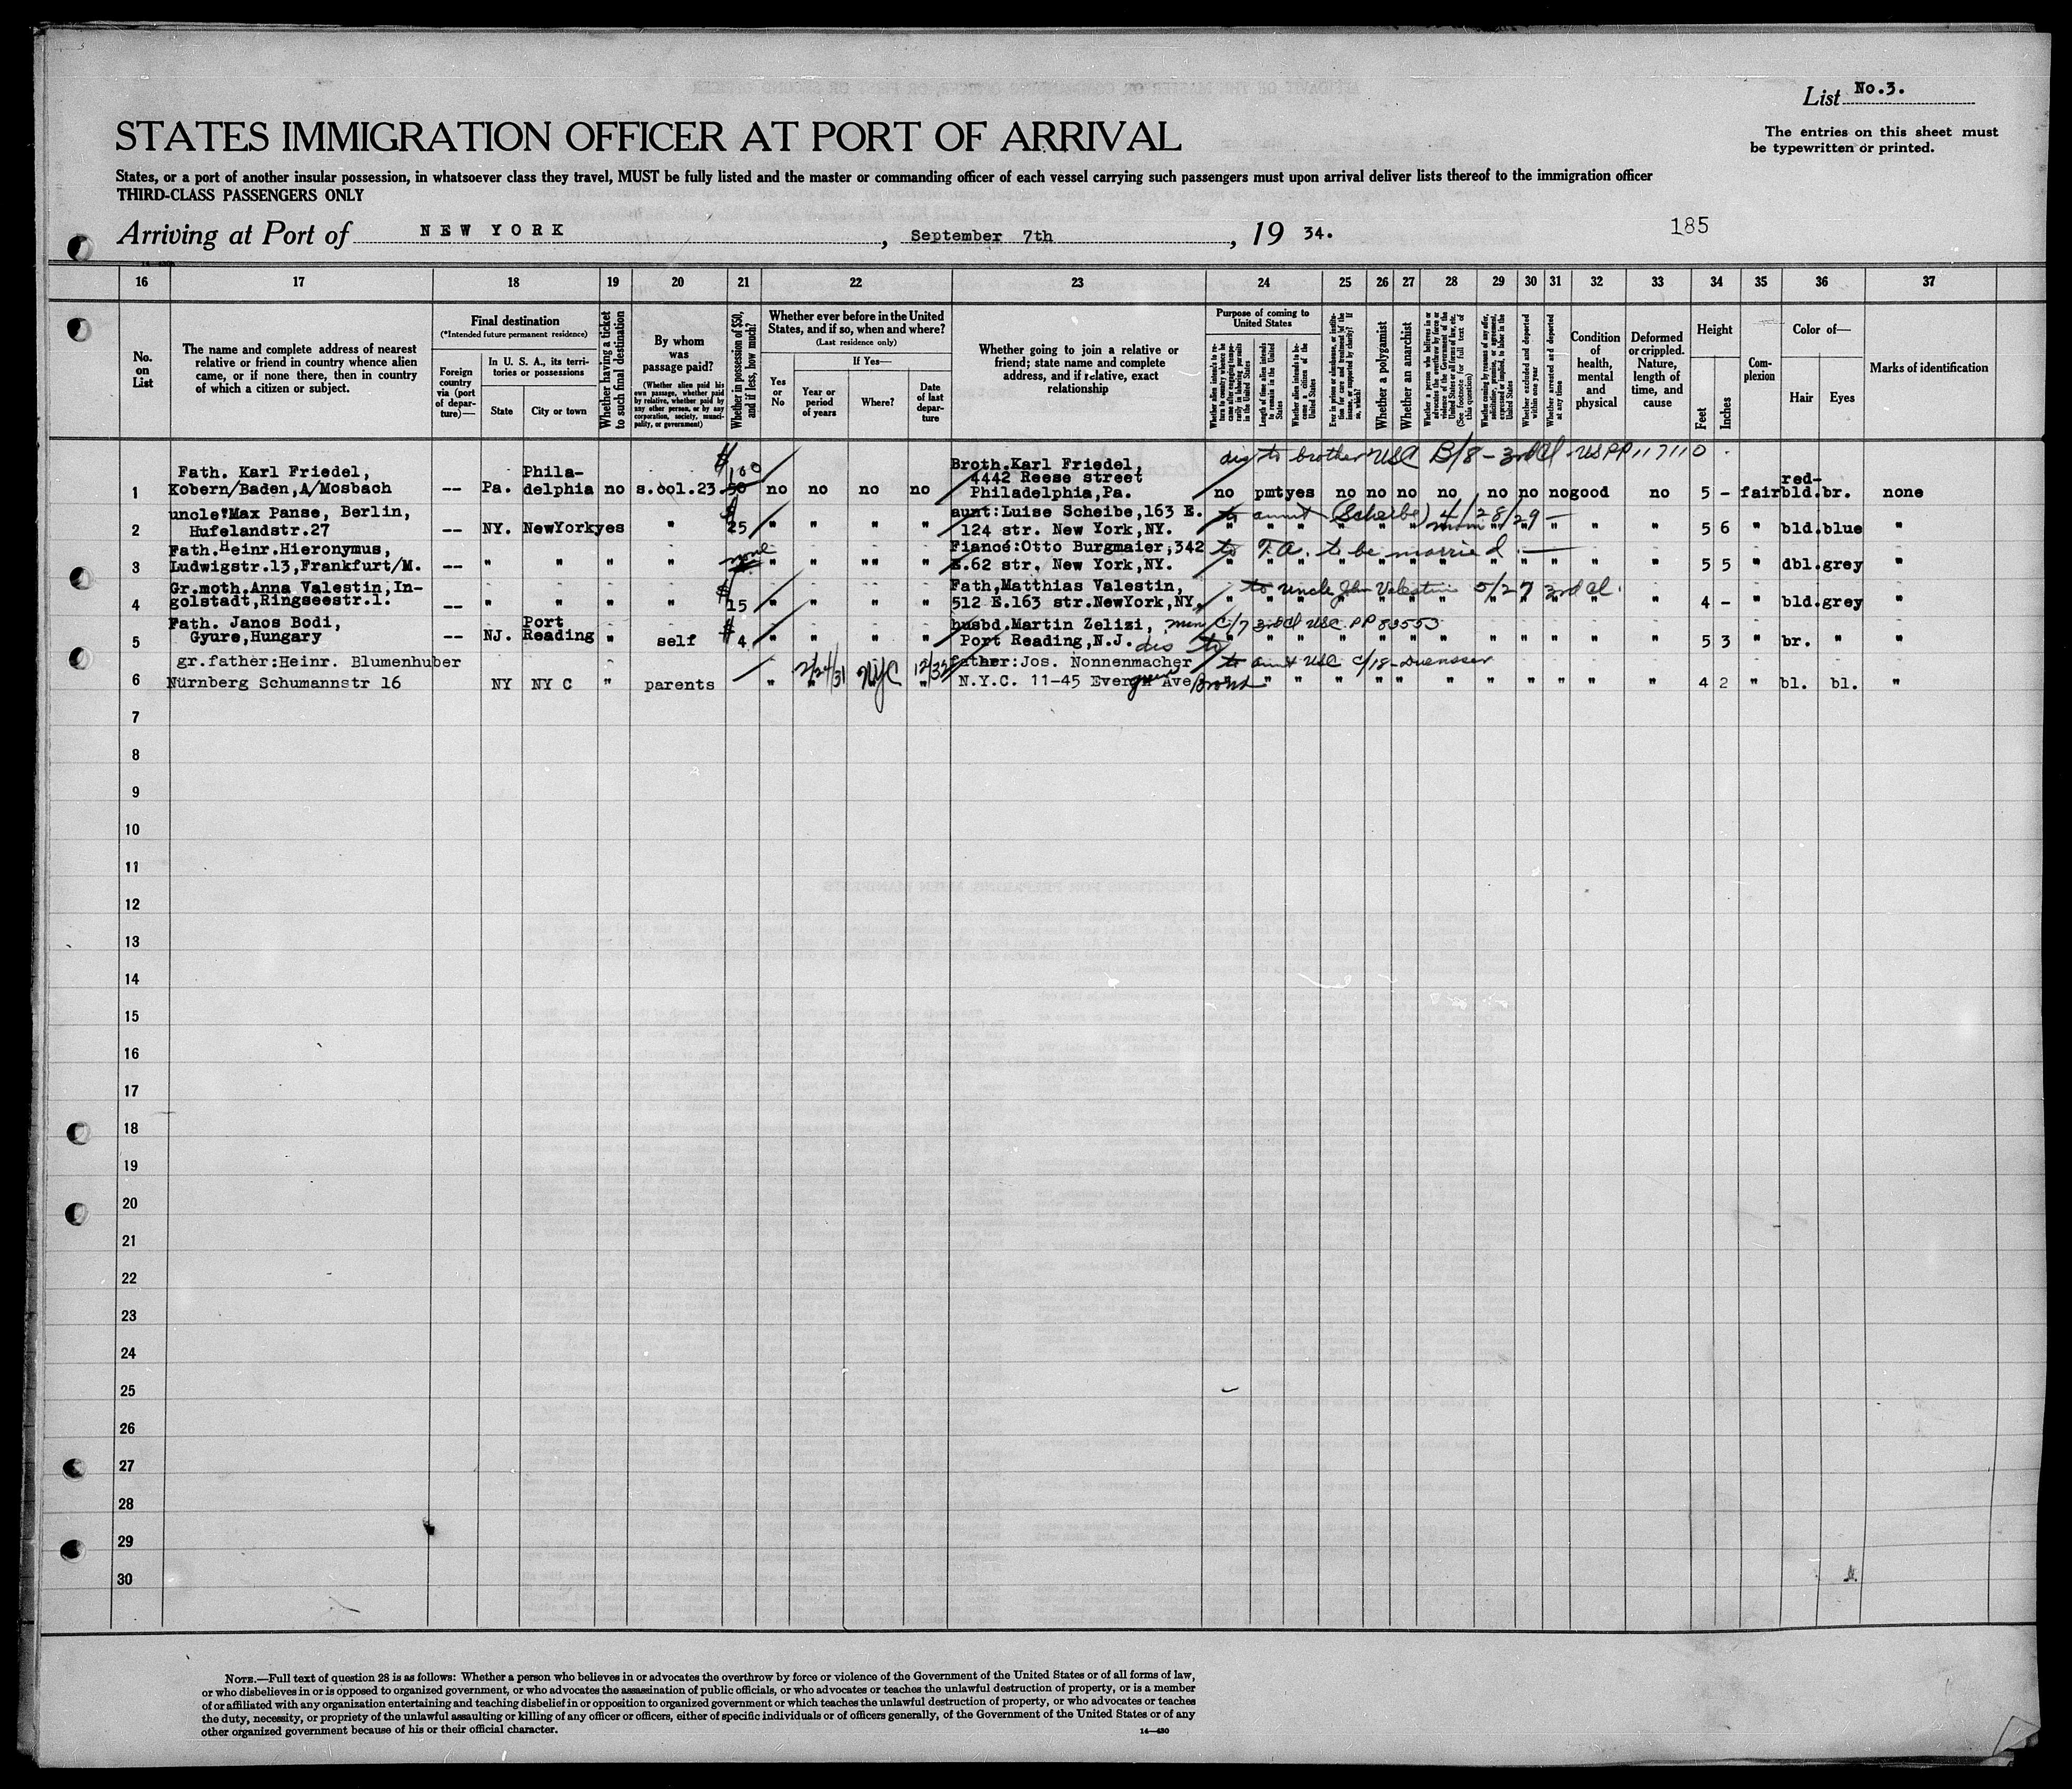 List No.3.
STATES IMMIGRATION OFFICER AT PORT OF ARRIVAL
The entries on this sheet must
be typewritten or printed.
States, or a port of another insular possession, in whatsoever class they travel, MUST be fully listed and the master or commanding officer of each vessel carrying such passengers must upon arrival deliver lists thereof to the immigration officer
THIRD-CLASS PASSENGERS ONLY
Arriving at Port of NEW YORK, September 7th, 19 34.
185
16 17 18 19 20 21 22 23 24 25 26 27 28 29 30 31 32 33 34 35 36 37
No.
on
List
The name and complete address of nearest
relative or friend in country whence alien
came, or if none there, then in country
of which a citizen or subject.
Final destination
(*Intended future permanent residence)
Foreign
country
via (port
of depar-
ture)—
In U. S. A., its terri-
tories or possessions
State
City or town
Whether having a ticket
to such final destination
By whom
was
passage paid?
(Whether alien paid his
own passage, whether paid
by relative, whether paid
by any other person, or by any
corporation, society, munici-
pality, or government)
Whether in possession of $50,
and if less, how much?
Whether ever before in the United
States, and if so, when and where?
(Last residence only)
Yes
or
No
If Yes—
Year or
period
of years
Where?
Date
of last
depar-
ture
Whether going to join a relative or
friend; state name and complete
address, and if relative, exact
relationship
Purpose of coming to
United States
Whether alien intends to re-
turn to country whence he
came after engaging tempo-
rarily in laboring pursuits
in the United States
Length of time alien intends
to remain in the United
States
Whether alien intends to be-
come a citizen of the
United States
Ever in prison or almshouse, or institu-
tion for care and treatment of the
insane, or supported by charity? If
so, which?
Whether a polygamist
Whether an anarchist
Whether a person who believes in or
advocates the overthrow by force or
violence of the Government of the
United States or all forms of law, etc.
(See footnote for full text of
this question)
Whether coming by reason of any offer,
solicitation, promise, or agreement,
expressed or implied, to labor in the
United States
Whether excluded and deported
within one year
Whether arrested and deported
at any time
Condition
of
health,
mental
and
physical
Deformed
or crippled.
Nature,
length of
time, and
cause
Height
Feet
Inches
Com-
plexion
Color of—
Hair
Eyes
Marks of identification
dis to brother USC B/8 - 3rd Cl - US PP 117110
Fath. Karl Friedel, Phila- $100 Broth.Karl Friedel,
4442 Reese street red-
1 Kobern/Baden,A/Mosbach -- Pa. delphia no s.col.23 50 no no no no Philadelphia,Pa. no pmt yes no no no no no no no good no 5 - fair bld. br. none
uncle:Max Panse, Berlin, $ aunt:Luise Scheibe,163 E. to aunt (Scheibe) 4/28/29 —
2 Hufelandstr.27 -- NY. NewYork yes " 25 " " " " 124 str. New York,NY. " " 5 6 " bld. blue "
Fath.Heinr.Hieronymus, none Fiancé:Otto Burgmaier,342 to F.A. to be married. —
3 Ludwigstr.13,Frankfurt/M. -- " " " " " " "" " E.62 str. New York,NY. " " " " " " " " " " " " 5 5 " dbl. grey "
Gr.moth.Anna Valestin,In- $ Fath,Matthias Valestin, to uncle John Valestin 5/27 3rd Cl.
4 golstadt,Ringseestr.1. -- " " " " 15 " " " " 512 E.163 str.NewYork,NY. " " " " " " " " " " " " 4 - " bld. grey "
Fath. Janos Bodi, Port husbd.Martin Zelizi, C/7 3rd Cl USC. PP 83553
5 Gyure,Hungary -- NJ. Reading " self $4 " " " " Port Reading,N.J. dis to " " " " " " " " " " " " 5 3 " br. " "
gr.father:Heinr. Blumenhuber 2/24/31 NYC 12/32 father:Jos. Nonnenmacher to aunt USC C/18-
6 Nürnberg Schumannstr 16 NY NY C " parents " " " N.Y.C. 11-45 Evergreen Ave Bronx " " " " " " " " " " " 4 2 " bl. bl. "
7
8
9
10
11
12
13
14
15
16
17
18
19
20
21
22
23
24
25
26
27
28
29
30
NOTE.—Full text of question 28 is as follows: Whether a person who believes in or advocates the overthrow by force or violence of the Government of the United States or of all forms of law,
or who disbelieves in or is opposed to organized government, or who advocates the assassination of public officials, or who advocates or teaches the unlawful destruction of property, or is a member
of or affiliated with any organization entertaining and teaching disbelief in or opposition to organized government or which teaches the unlawful destruction of property, or who advocates or teaches
the duty, necessity, or propriety of the unlawful assaulting or killing of any officer or officers, either of specific individuals or of officers generally, of the Government of the United States or of any
other organized government because of his or their official character.
14—430